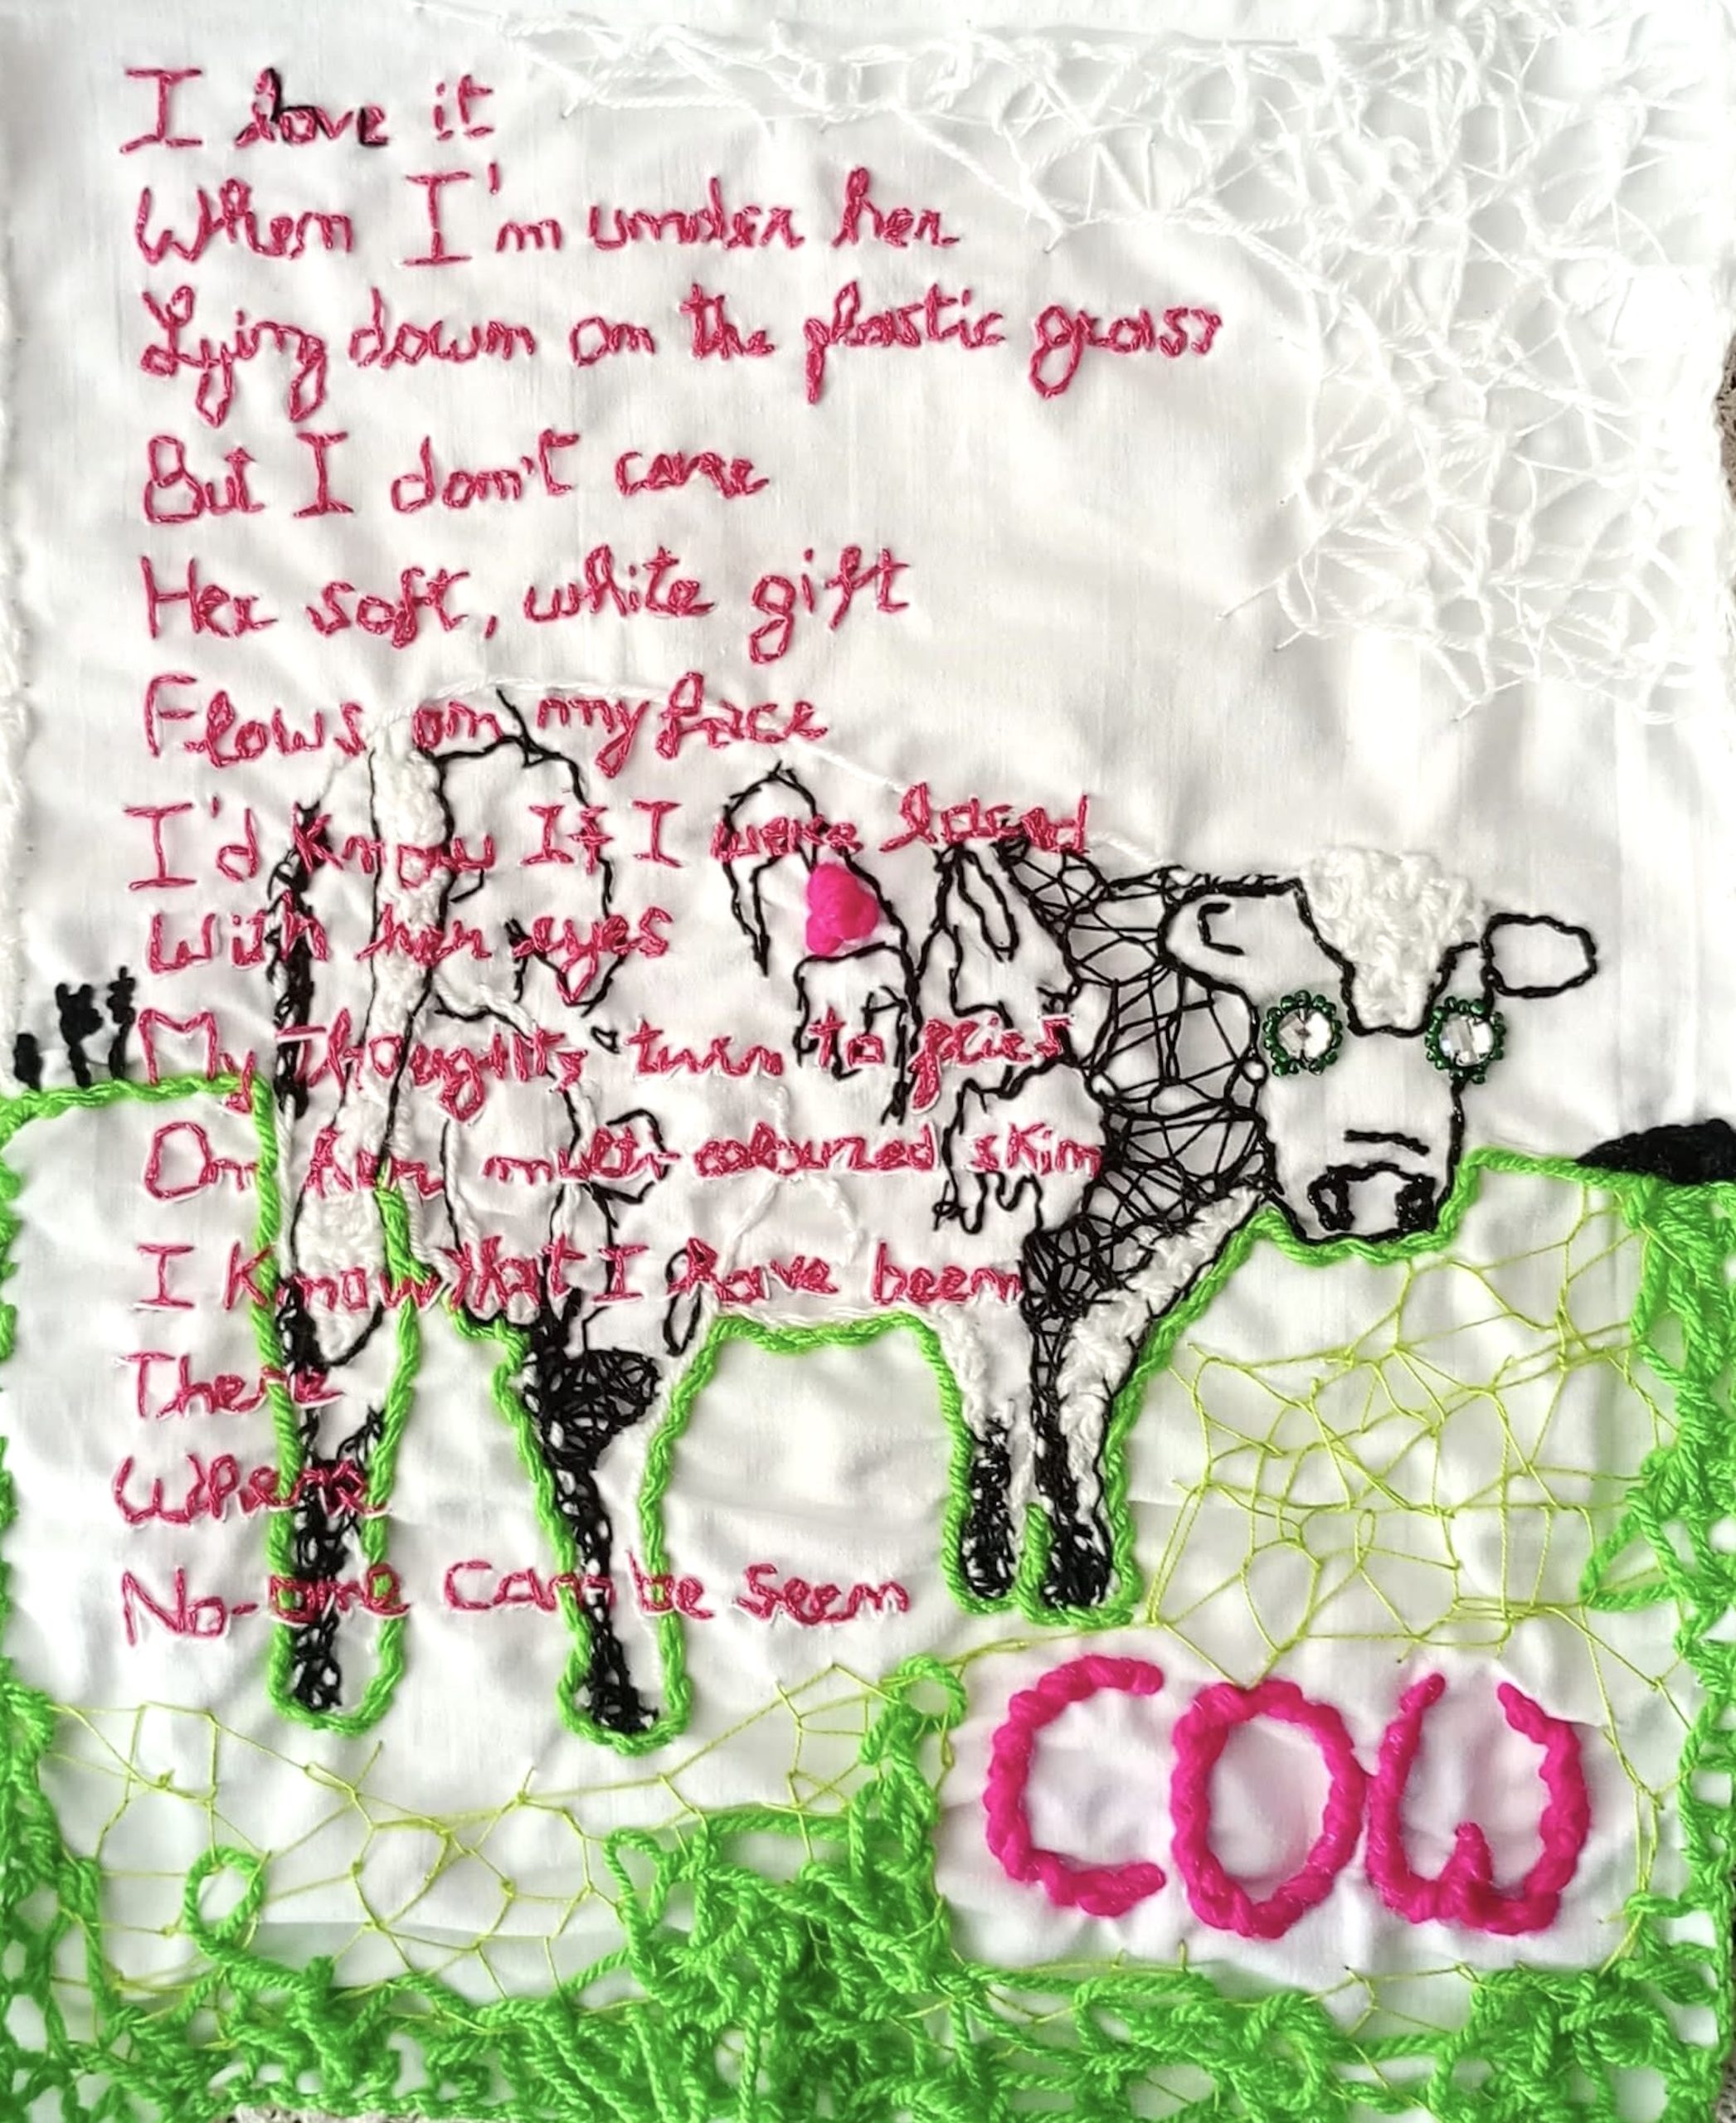 I love it
When I'm under her
Lying down on the plastic grass
But I don't care
Her soft, white gift
Flows on my face
I'd know If I were faced
With her eyes
My thoughts turn to
On her multi-coloured skin
I know that I have been
There
Where
No-one can be seen
COW